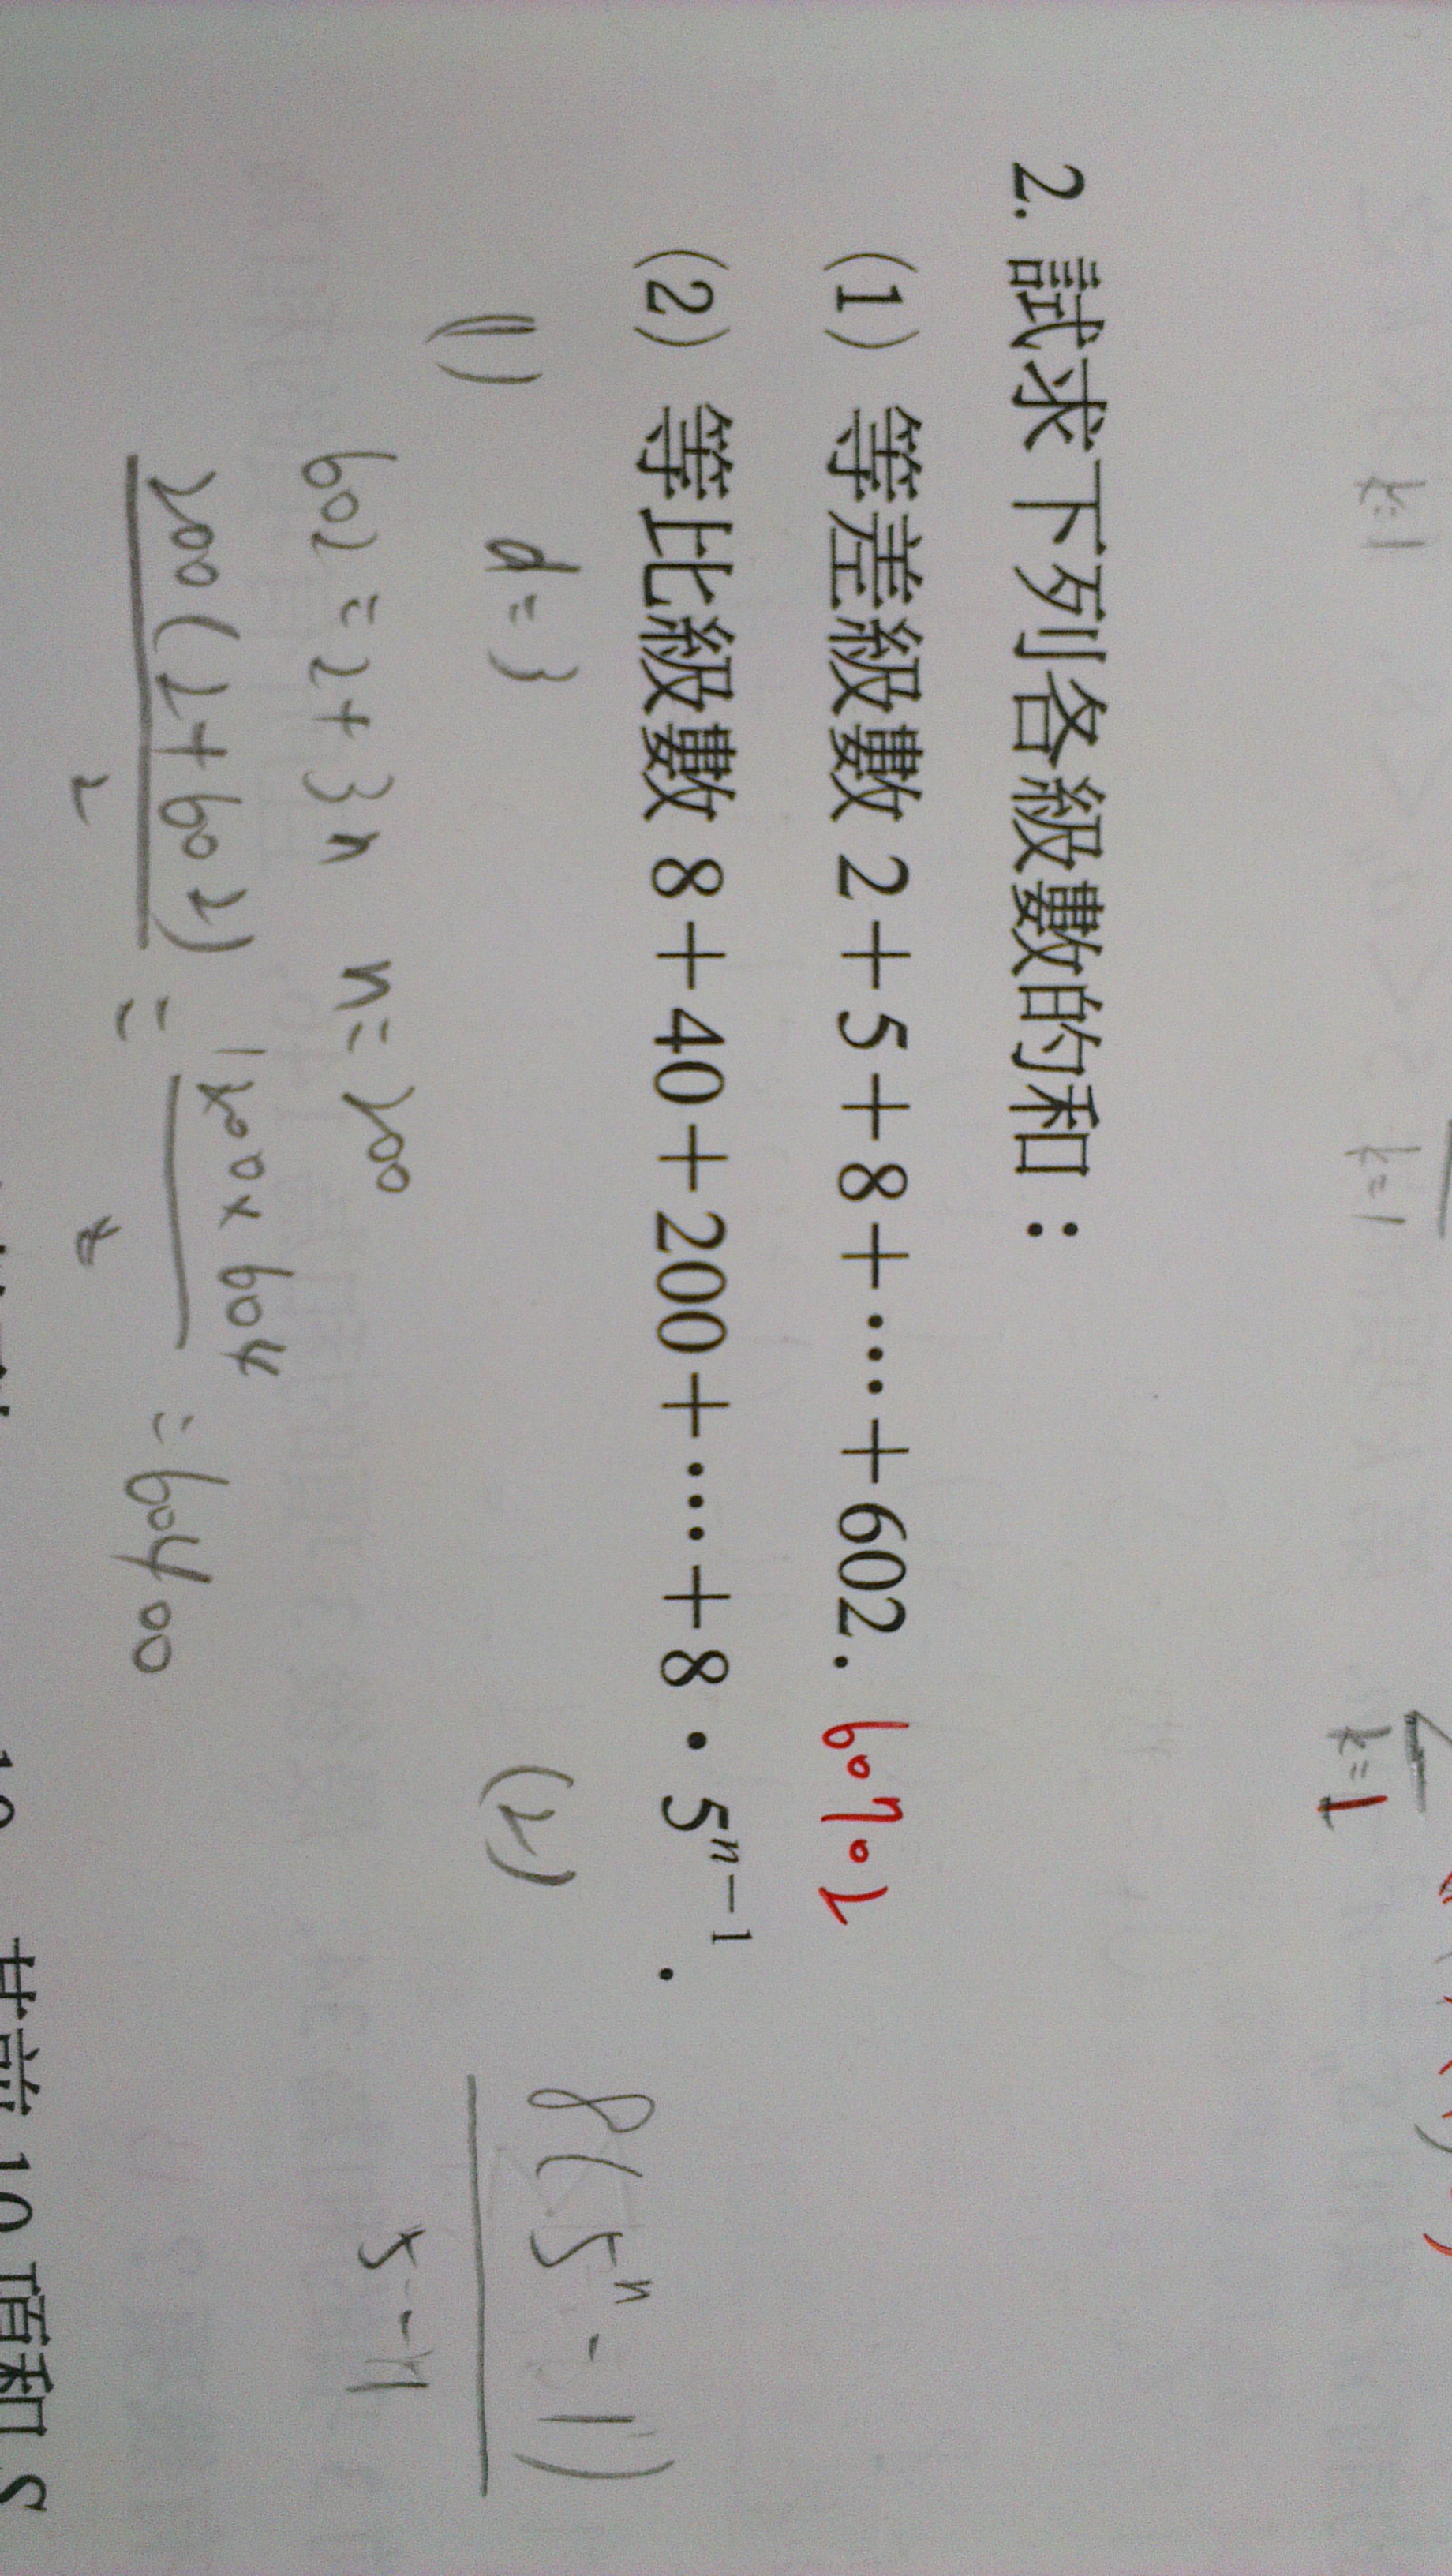 2. 試求下列各級數的和：
(1) 等差級數 2＋5＋8＋…＋602. 60702
(2) 等比級數 8＋40＋200＋…＋8・5ⁿ⁻¹.
(1) d=3
602=2+3n n=200
200(2+602)/2 = 604
=60400
(2) 8(5ⁿ-1)
k=1
k=1
k=1
10項和 S